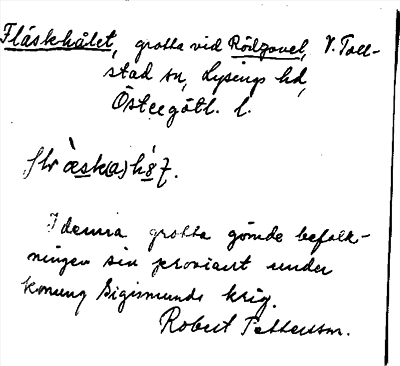 Fläskhålet, grotta vid Rödgavel, V. Toll-
stad sn, Lysings hd,
Östergötl. l.
I denna grotta gömde befolk-
ningen sin proviant under
konung Sigismunds krig.
Robert Pettersson.